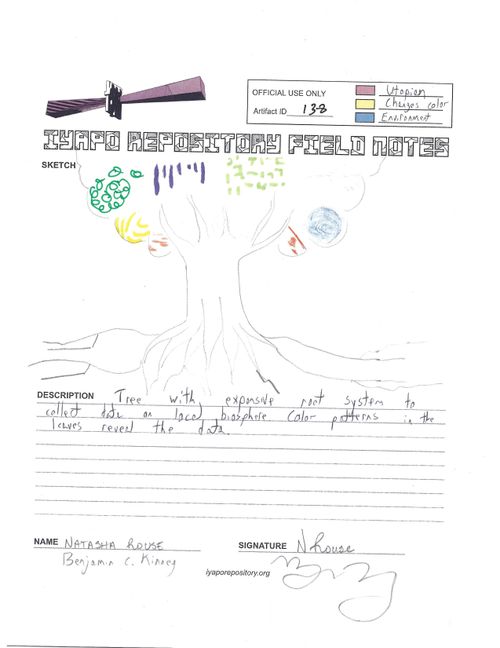 OFFICIAL USE ONLY
Artifact ID 138
Utopian
Changes color
Environment
IYAPO REPOSITORY FIELD NOTES
SKETCH
DESCRIPTION Tree with expansive root system to
collect data on local biosphere Color patterns in the
leaves reveal the data.
NAME NATASHA ROUSE
Benjamin C. Kinney
SIGNATURE N Rouse
iyaporepository.org